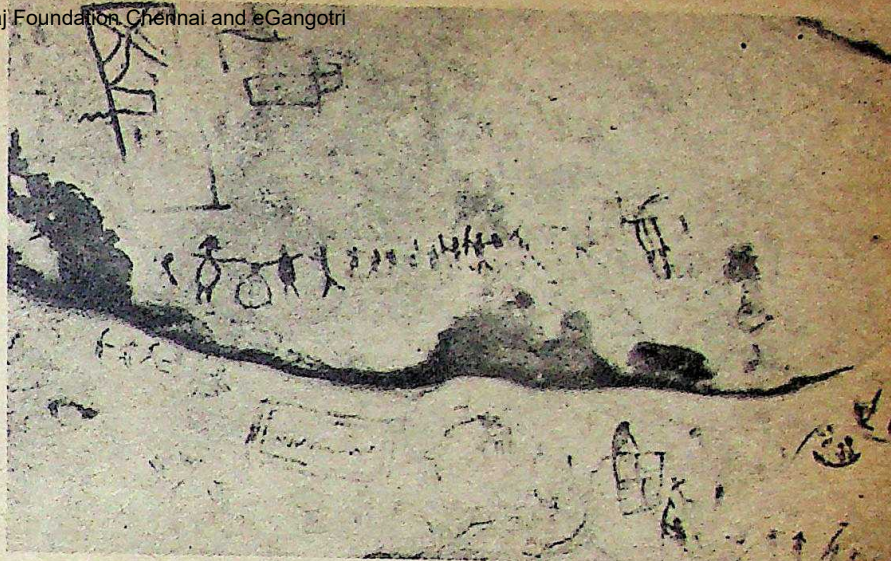 j Foundation Chennai and eGangotri